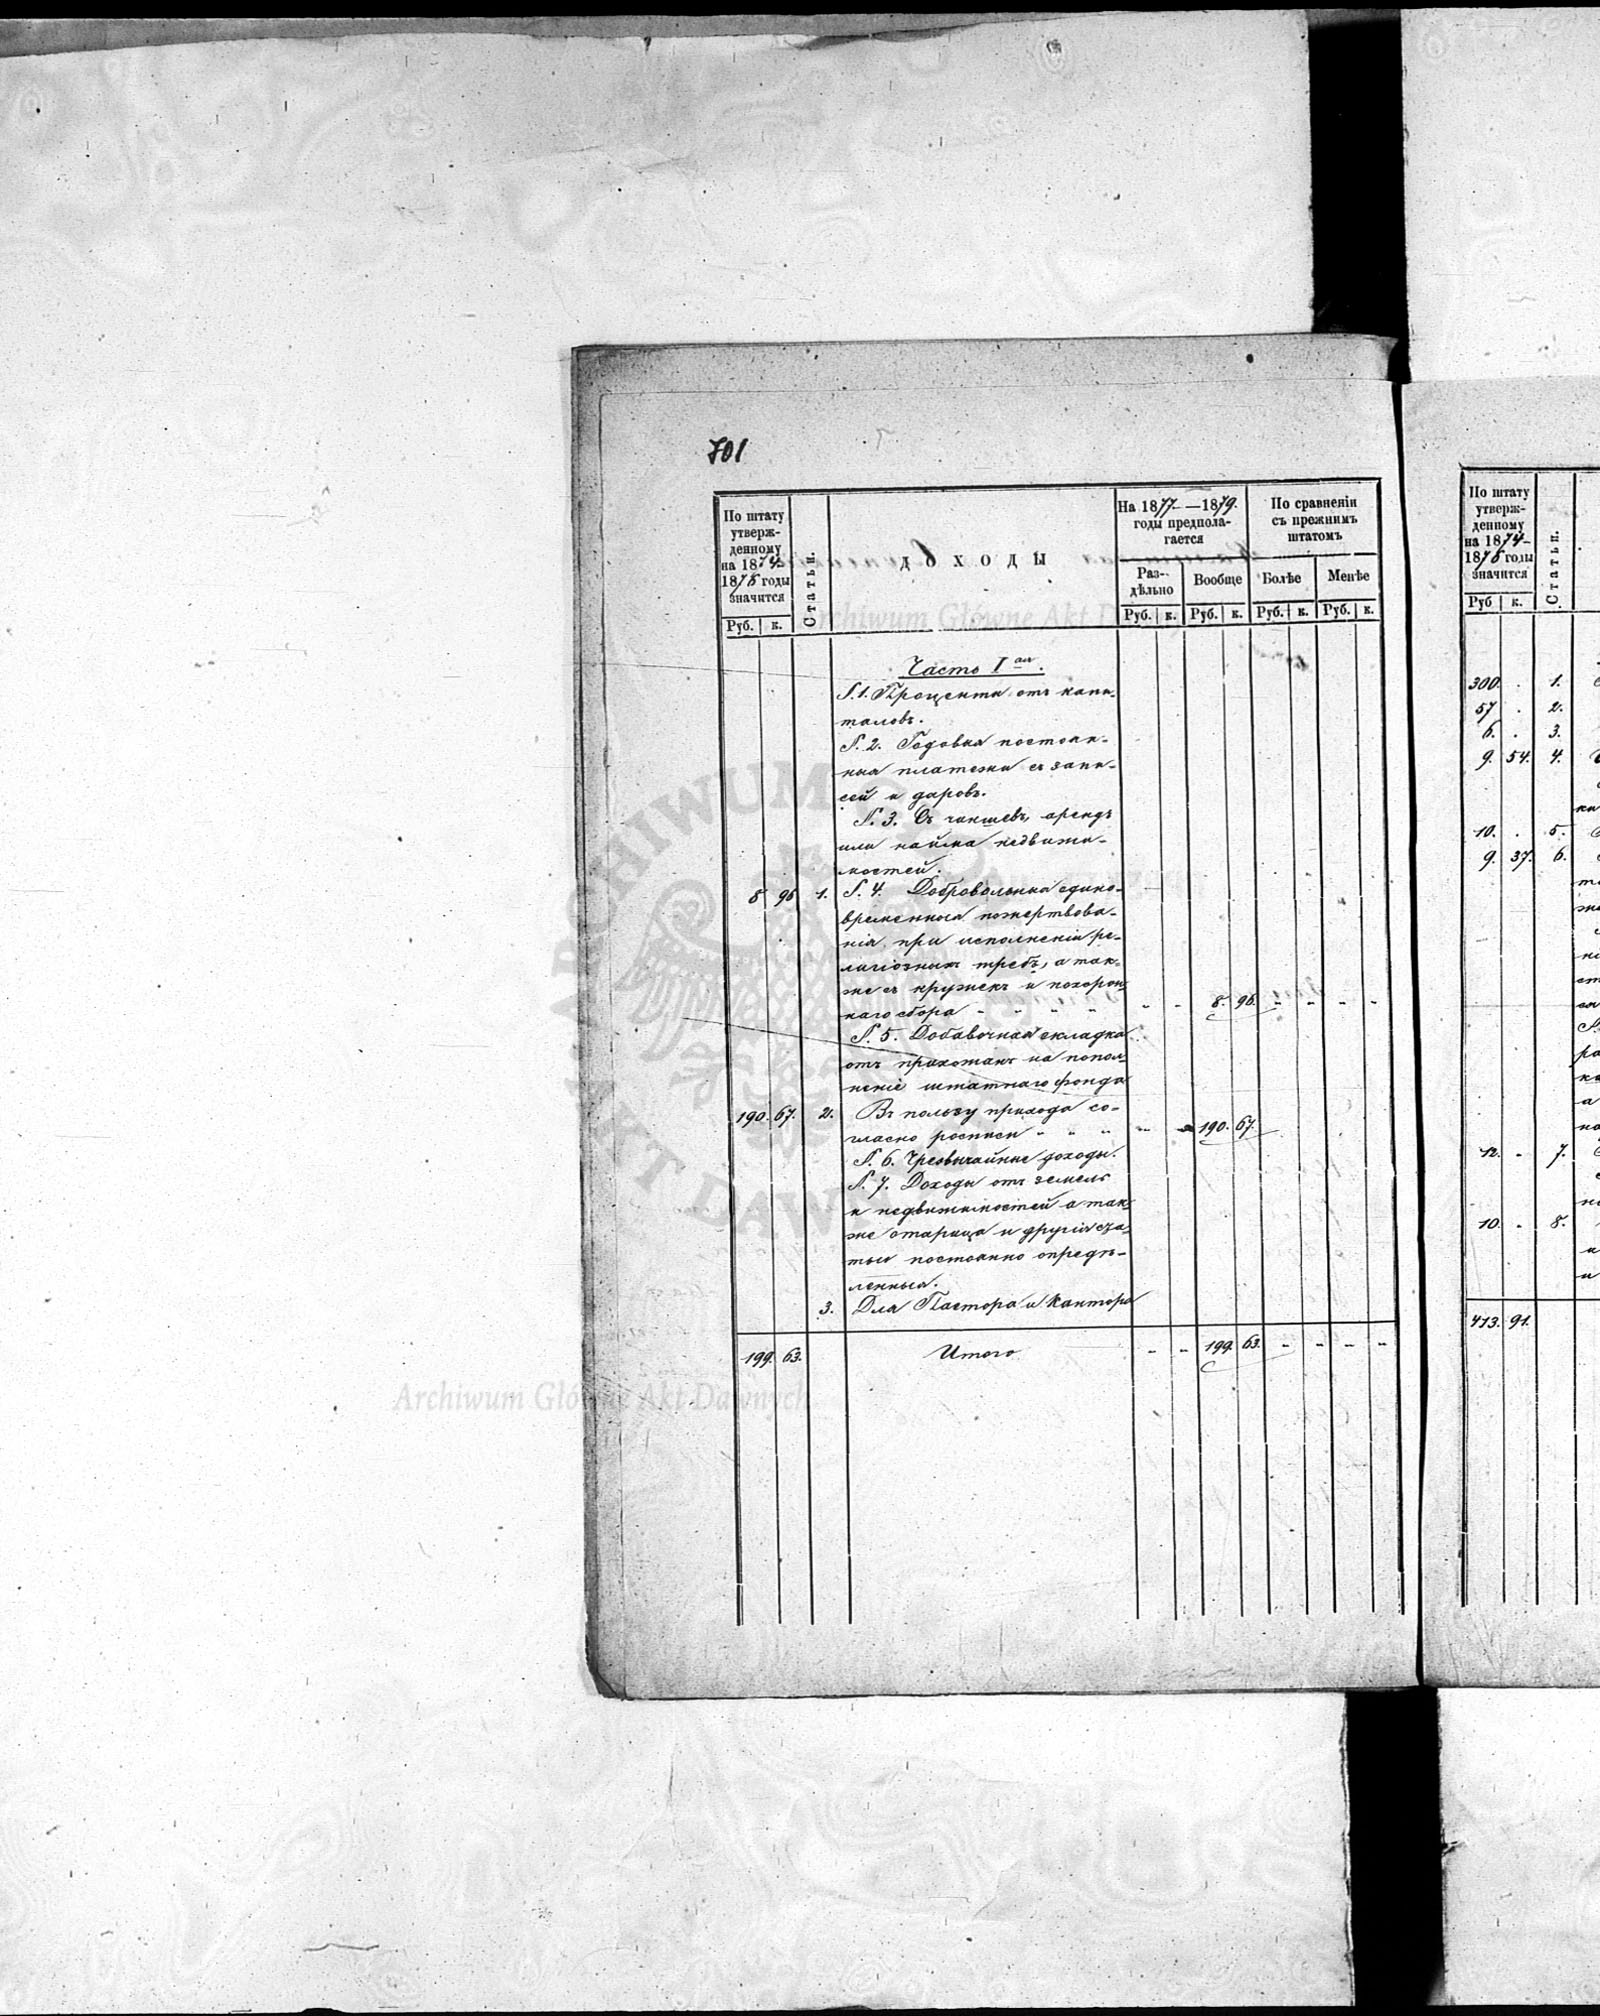 701
По штату
утверж-
денному
на 1874-
1876 годы
значится
Руб. к.
Статьи.
ДОХОДЫ
На 1877-—1879.
годы предпола-
гается
Раз-
дѣльно
Вообще
Руб. к. Руб. к.
По сравненіи
съ прежнимъ
штатомъ
Болѣе Менѣе
Руб. к. Руб. к.
Archiwum Główne Akt D
Часть I ая.
§. 1. Проценты отъ капи-
таловъ.
§. 2. Годовыя постоян-
ныя платежи съ запи-
сей и даровъ.
§. 3. Съ чиншевъ, арендъ
или найма недвижи-
мостей.
8 96 1. §. 4. Добровольныя едино-
временныя пожертвова-
нія, при исполненіи ре-
лигіозныхъ требъ, а так-
же съ кружекъ и похорон-
наго сбора - " " " - - 8. 96. - - - -
§. 5. Добавочная складка
отъ прихожанъ на попол-
неніе штатнаго фонда
190. 67. 2. Въ пользу прихода со-
гласно росписи " " " - 190. 67.
§. 6. Чрезвычайные доходы.
§. 7. Доходы отъ земель
и недвижимостей а так-
же
и другія ста-
тьи постоянно опредѣ-
ленныя.
3. Для Пастора и Кантора
199. 63. Итого - - 199. 63. - - - -
Archiwum Główne Akt Dawnych
ARCHIWUM
AKT DAW
По штату
утверж-
денному
на 1874-
1876 годы
значится
Руб к.
Статьи.
300. . 1.
57 . 2.
6. . 3.
9. 54. 4.
10. . 5.
9. 37. 6.
12. - 7.
10. - 8.
413. 91.